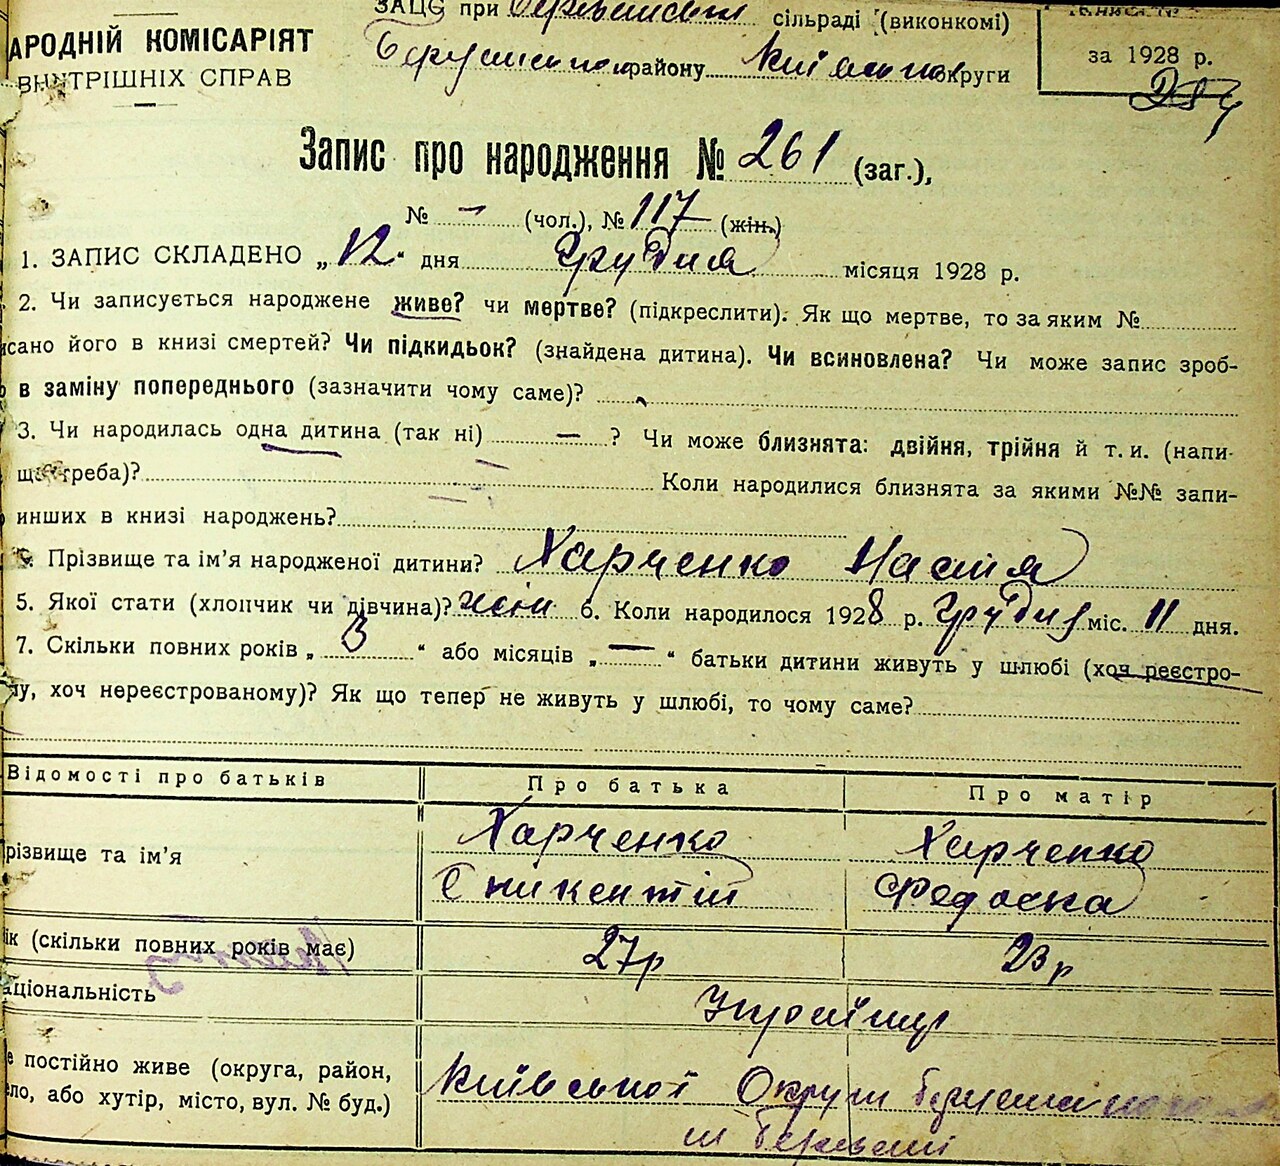 ЗАЦС при сільраді (виконкомі)
АРОДНІЙ КОМІСАРІЯТ
ВНУТРІШНІХ СПРАВ
району Київської округи
за 1928 р.
Запис про народження № 261 (заг.),
№ — (чол.), № 117 (жін.)
1. ЗАПИС СКЛАДЕНО „12“ дня Грудня місяця 1928 р.
2. Чи записується народжене живе? чи мертве? (підкреслити). Як що мертве, то за яким №
исано його в книзі смертей? Чи підкидьок? (знайдена дитина). Чи всиновлена? Чи може запис зроб-
в заміну попереднього (зазначити чому саме)?
3. Чи народилась одна дитина (так ні) — ? Чи може близнята: двійня, трійня й т. и. (напи-
що треба)? Коли народилися близнята за якими №№ запи-
инших в книзі народжень?
Прізвище та ім'я народженої дитини? Харченко Настя
5. Якої стати (хлопчик чи дівчина)? жін 6. Коли народилося 1928 р. Грудня міс. 11 дня.
7. Скільки повних років „ 3 “ або місяців „ — “ батьки дитини живуть у шлюбі (хоч реєстро-
у, хоч нереєстрованому)? Як що тепер не живуть у шлюбі, то чому саме?
Відомості про батьків Про батька Про матір
різвище та ім'я Харченко Харченко
Єникентій Федоска
ік (скільки повних років має) 27р 23р
аціональність Українці
е постійно живе (округа, район,
ело, або хутір, місто, вул. № буд.) Київської Округи